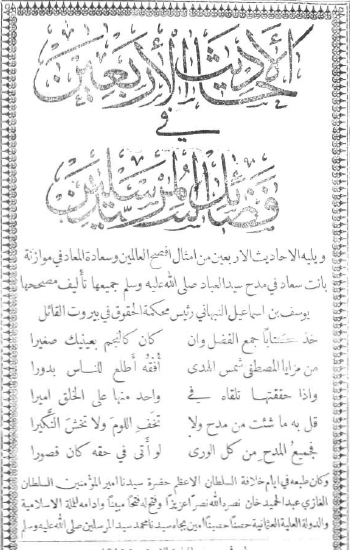 الأحاديث الأربعين
في
فضائل سيد المرسلين
ويليه الاحاديث الاربعين من امثال افصح العالمين وسعادة المعاد في موازنة
بانت سعاد في مدح سيد العباد صلى الله عليه وسلم جميعها تأليف مصححها
يوسف بن اسماعيل النبهاني رئيس محكمة الحقوق في بيروت القائل
خذ كتابا جمع الفضل وان كان كالنجم بعينيك صغيرا
من مزايا المصطفى شمس الهدى أفقه أطلع للناس بدورا
واذا حققتها تلقاه في واحد منها على الخلق اميرا
قل به ما شئت من مدح ولا تخف اللوم ولا تخش النكيرا
فجميع المدح من كل الورى لو أتى في حقه كان قصورا
وكان طبعه في ايام خلافة السلطان الاعظم حضرة سيدنا امير المؤمنين السلطان
الغازي عبد الحميد خان نصره الله نصرا عزيزا وفتح له فتحا مبينا وادامه للملة الاسلامية
والدولة العلية العثمانية حصنا حصينا آمين بجاه سيدنا محمد سيد المرسلين صلى الله عليه وسلم